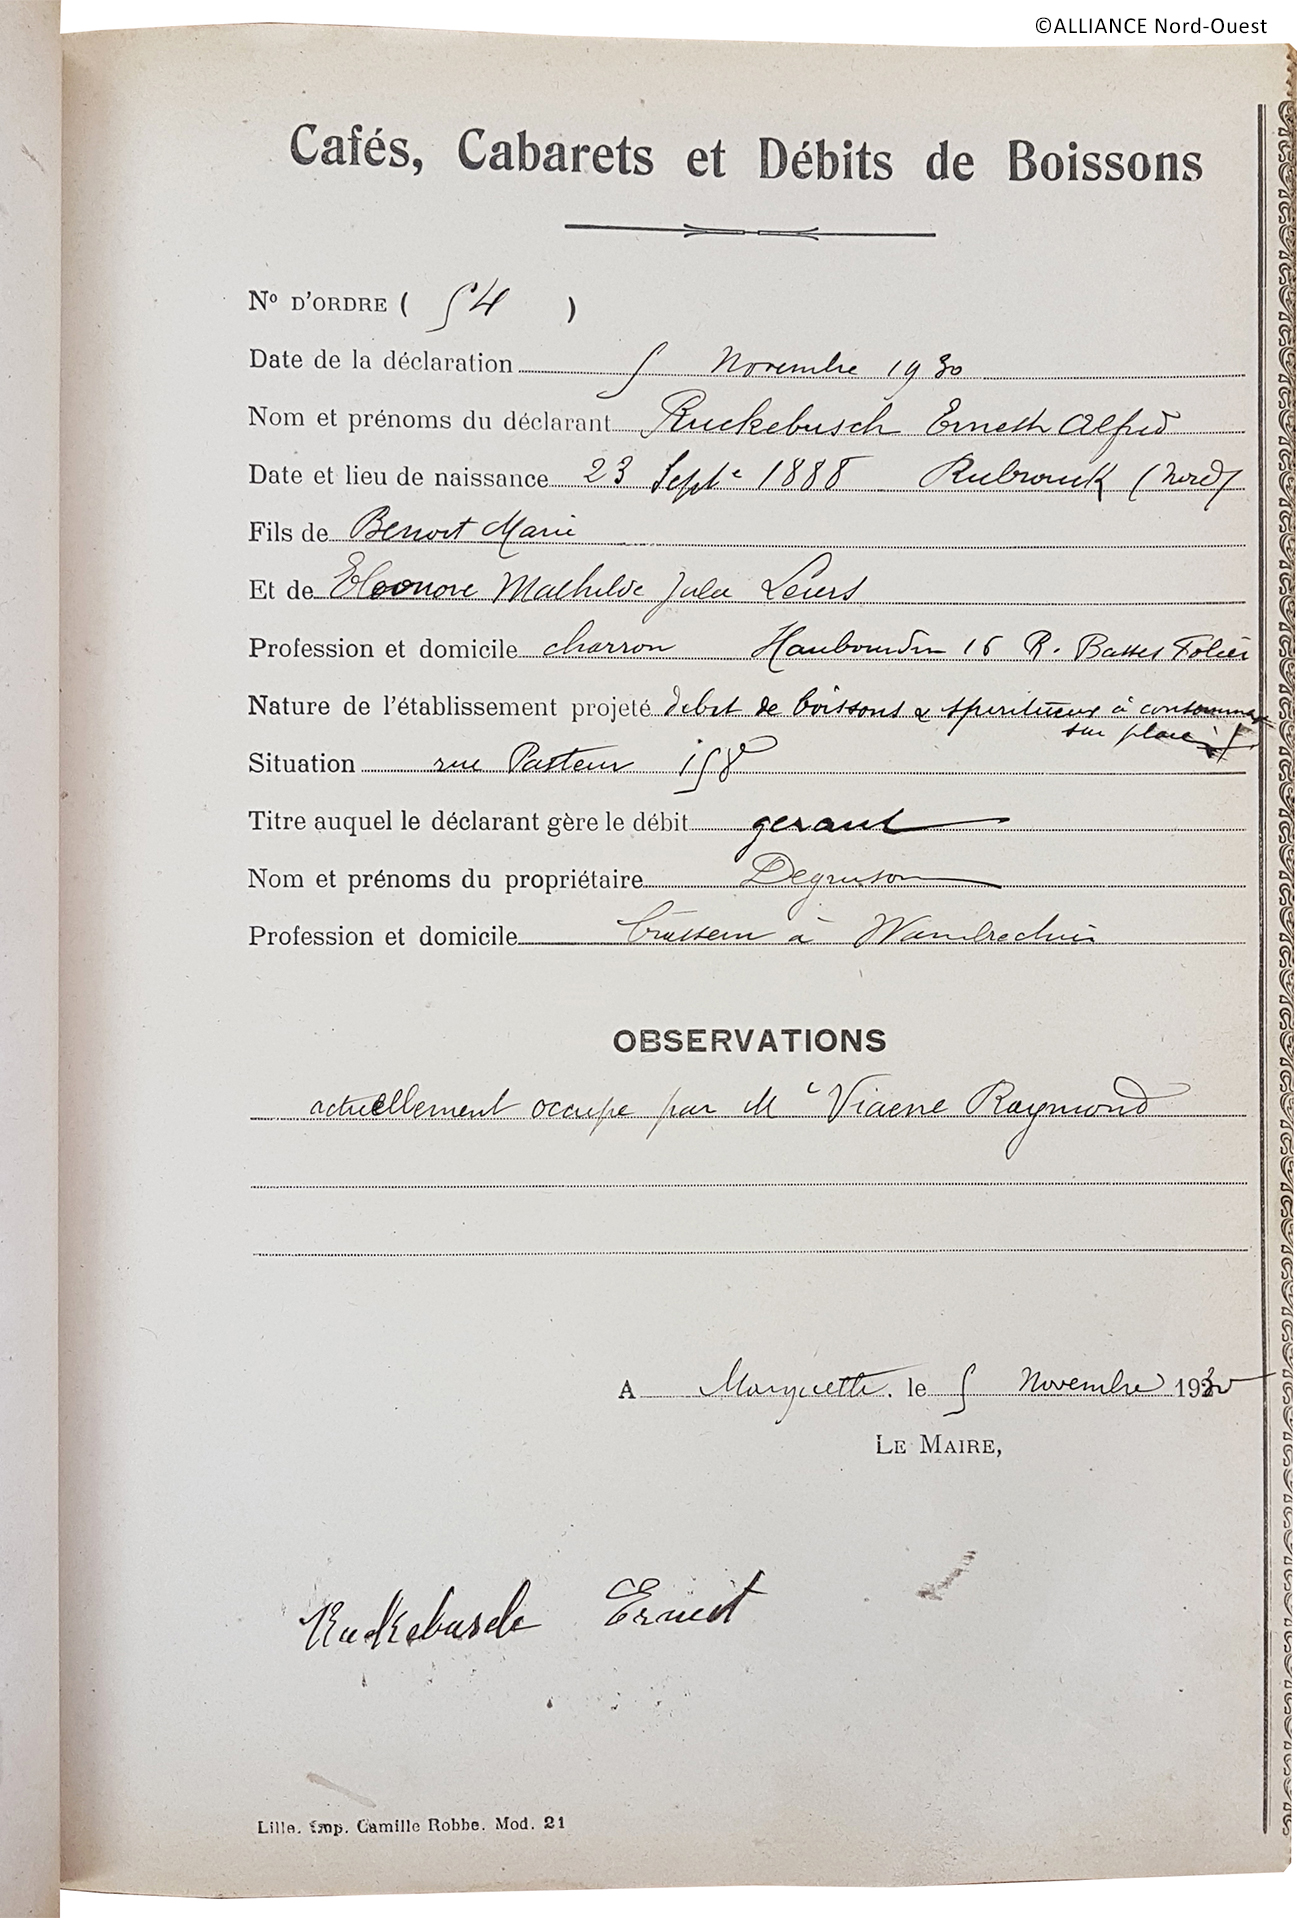 ©ALLIANCE Nord-Ouest
Cafés, Cabarets et Débits de Boissons
Nº D'ORDRE ( 54 )
Date de la déclaration 5 Novembre 1930
Nom et prénoms du déclarant Ruckebusch Ernest Alfred
Date et lieu de naissance 23 Septe 1888 Rubrouck (Nord)
Fils de Benoit Marie
Et de Eleonore Mathilde Julie Leurs
Profession et domicile charron Haubourdin 16 R.
Nature de l'établissement projeté debit de boissons & spiritueux à consommer
sur place
Situation rue Pasteur 158
Titre auquel le déclarant gère le débit gerant
Nom et prénoms du propriétaire Degruson
Profession et domicile brasseur à Wambrechies
OBSERVATIONS
actuellement occupe par Mr Viaene Raymond
A Marquette. le 5 Novembre 1930
LE MAIRE,
Ruckebusch Ernest
Lille. Imp. Camille Robbe. Mod. 21